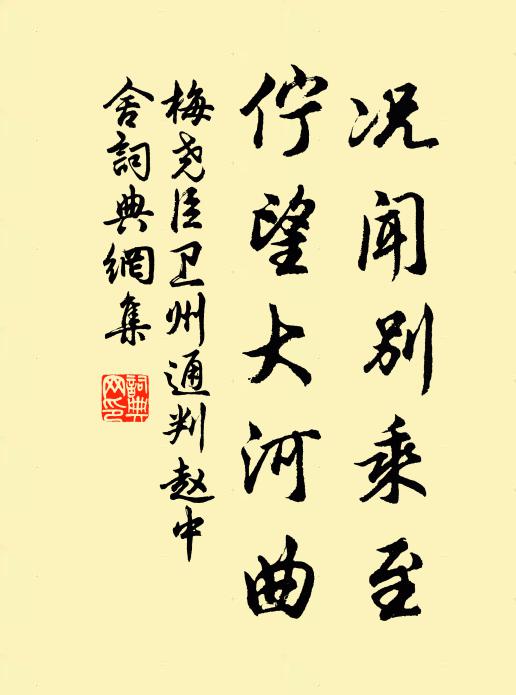 况闻别乘至
伫望大河曲
梅尧臣卫州通判赵中
舍詞典網集
詞典网印